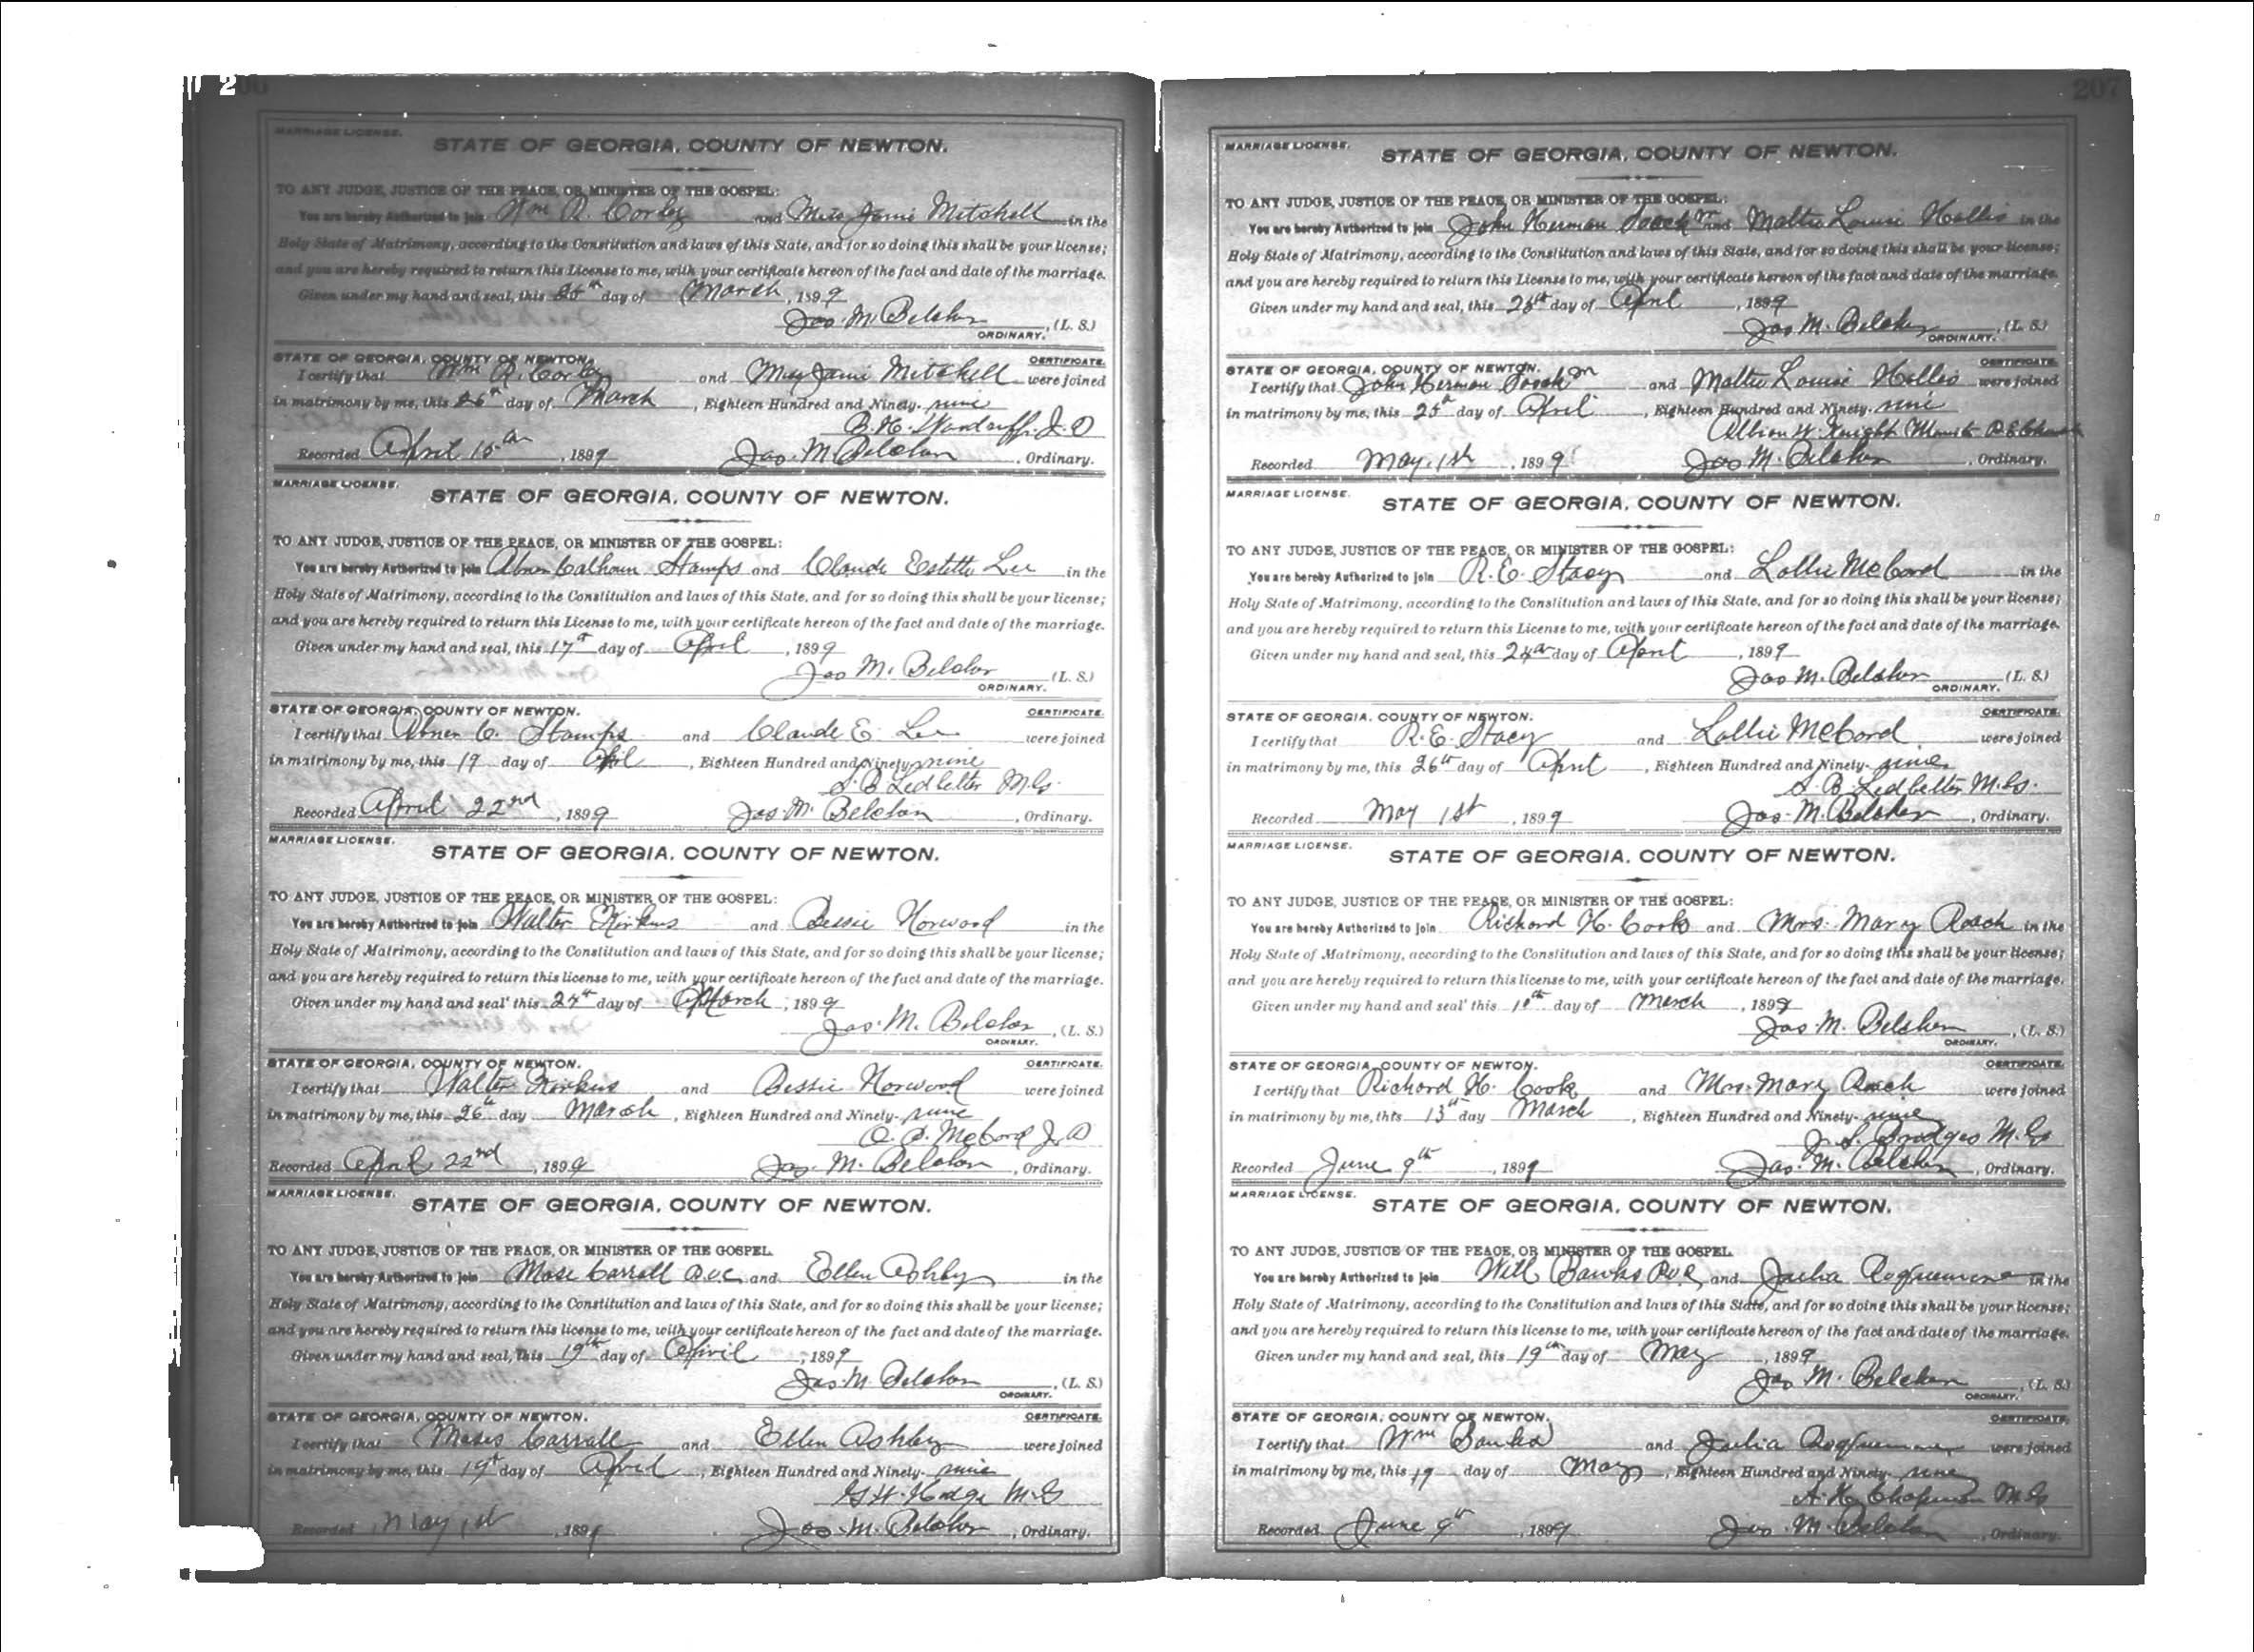 206
MARRIAGE LICENSE.
STATE OF GEORGIA, COUNTY OF NEWTON.
TO ANY JUDGE, JUSTICE OF THE PEACE, OR MINISTER OF THE GOSPEL:
You are hereby Authorized to join Wm R. Corley and Miss Janie Mitchell in the
Holy State of Matrimony, according to the Constitution and laws of this State, and for so doing this shall be your license;
and you are hereby required to return this License to me, with your certificate hereon of the fact and date of the marriage.
Given under my hand and seal, this 25th day of March, 1899
Jas. M. Belcher, (L. S.)
ORDINARY.
STATE OF GEORGIA, COUNTY OF NEWTON. CERTIFICATE.
I certify that Wm R. Corley and Miss Janie Mitchell were joined
in matrimony by me, this 26th day of March, Eighteen Hundred and Ninety-nine
B. H. Woodruff J. P
Recorded April 15th, 1899 Jas. M. Belcher, Ordinary.
MARRIAGE LICENSE.
STATE OF GEORGIA, COUNTY OF NEWTON.
TO ANY JUDGE, JUSTICE OF THE PEACE, OR MINISTER OF THE GOSPEL:
You are hereby Authorized to join Abner Calhoun Stamps and Claude Estelle Lee in the
Holy State of Matrimony, according to the Constitution and laws of this State, and for so doing this shall be your license;
and you are hereby required to return this License to me, with your certificate hereon of the fact and date of the marriage.
Given under my hand and seal, this 17th day of April, 1899
Jas M. Belcher (L. S.)
ORDINARY.
STATE OF GEORGIA, COUNTY OF NEWTON. CERTIFICATE.
I certify that Abner C. Stamps and Claude E. Lee were joined
in matrimony by me, this 19 day of April, Eighteen Hundred and Ninety-nine
S. B Ledbetter M.G.
Recorded April 22nd, 1899 Jas. M. Belcher, Ordinary.
MARRIAGE LICENSE.
STATE OF GEORGIA, COUNTY OF NEWTON.
TO ANY JUDGE, JUSTICE OF THE PEACE, OR MINISTER OF THE GOSPEL:
You are hereby Authorized to join Walter and Bessie Norwood in the
Holy State of Matrimony, according to the Constitution and laws of this State, and for so doing this shall be your license;
and you are hereby required to return this license to me, with your certificate hereon of the fact and date of the marriage.
Given under my hand and seal' this 24th day of March, 1899
Jas. M. Belcher, (L. S.)
ORDINARY.
STATE OF GEORGIA, COUNTY OF NEWTON. CERTIFICATE.
I certify that Walter and Bessie Norwood were joined
in matrimony by me, this 26th day March, Eighteen Hundred and Ninety-nine
McCord J. P
Recorded April 22nd, 1899 Jas. M. Belcher, Ordinary.
MARRIAGE LICENSE.
STATE OF GEORGIA, COUNTY OF NEWTON.
TO ANY JUDGE, JUSTICE OF THE PEACE, OR MINISTER OF THE GOSPEL.
You are hereby Authorized to join Mose Carrall and Ellen Ashby in the
Holy State of Matrimony, according to the Constitution and laws of this State, and for so doing this shall be your license;
and you are hereby required to return this license to me, with your certificate hereon of the fact and date of the marriage.
Given under my hand and seal, this 19th day of April, 1899
Jas. M. Belcher, (L. S.)
ORDINARY.
STATE OF GEORGIA, COUNTY OF NEWTON. CERTIFICATE.
I certify that Moses Carrall and Ellen Ashby were joined
in matrimony by me, this 19th day of April, Eighteen Hundred and Ninety-nine
G H. Hodge M.G
Recorded May 1st, 1899 Jas. M. Belcher, Ordinary.
207
MARRIAGE LICENSE.
STATE OF GEORGIA, COUNTY OF NEWTON.
TO ANY JUDGE, JUSTICE OF THE PEACE, OR MINISTER OF THE GOSPEL:
You are hereby Authorized to join John Herman and Mattie Louise Hollis in the
Holy State of Matrimony, according to the Constitution and laws of this State, and for so doing this shall be your license;
and you are hereby required to return this License to me, with your certificate hereon of the fact and date of the marriage.
Given under my hand and seal, this 25th day of April, 1899
Jas M. Belcher, (L. S.)
ORDINARY.
STATE OF GEORGIA, COUNTY OF NEWTON. CERTIFICATE.
I certify that John Herman and Mattie Louise Hollis were joined
in matrimony by me, this 25th day of April, Eighteen Hundred and Ninety-nine
Albion W. Knight
Recorded May 1st, 1899 Jas M. Belcher, Ordinary.
MARRIAGE LICENSE.
STATE OF GEORGIA, COUNTY OF NEWTON.
TO ANY JUDGE, JUSTICE OF THE PEACE, OR MINISTER OF THE GOSPEL:
You are hereby Authorized to join R. E. Stacy and Lollie McCord in the
Holy State of Matrimony, according to the Constitution and laws of this State, and for so doing this shall be your license;
and you are hereby required to return this License to me, with your certificate hereon of the fact and date of the marriage.
Given under my hand and seal, this 24th day of April, 1899
Jas M. Belcher (L. S.)
ORDINARY.
STATE OF GEORGIA, COUNTY OF NEWTON. CERTIFICATE.
I certify that R. E. Stacy and Lollie McCord were joined
in matrimony by me, this 26th day of April, Eighteen Hundred and Ninety-nine
S. B. Ledbetter M.G.
Recorded May 1st, 1899 Jas. M. Belcher, Ordinary.
MARRIAGE LICENSE.
STATE OF GEORGIA, COUNTY OF NEWTON.
TO ANY JUDGE, JUSTICE OF THE PEACE, OR MINISTER OF THE GOSPEL:
You are hereby Authorized to join Richard H. Cook and Mrs. Mary Roach in the
Holy State of Matrimony, according to the Constitution and laws of this State, and for so doing this shall be your license;
and you are hereby required to return this license to me, with your certificate hereon of the fact and date of the marriage.
Given under my hand and seal' this day of March, 1899
Jas. M. Belcher, (L. S.)
ORDINARY.
STATE OF GEORGIA, COUNTY OF NEWTON. CERTIFICATE.
I certify that Richard H. Cook and Mrs. Mary Roach were joined
in matrimony by me, this 13th day March, Eighteen Hundred and Ninety-nine
J. S. Bridges M.G
Recorded June 9th, 1899 Jas. M. Belcher, Ordinary.
MARRIAGE LICENSE.
STATE OF GEORGIA, COUNTY OF NEWTON.
TO ANY JUDGE, JUSTICE OF THE PEACE, OR MINISTER OF THE GOSPEL.
You are hereby Authorized to join Will Banks and Julia in the
Holy State of Matrimony, according to the Constitution and laws of this State, and for so doing this shall be your license;
and you are hereby required to return this license to me, with your certificate hereon of the fact and date of the marriage.
Given under my hand and seal, this 19th day of May, 1899
Jas M. Belcher, (L. S.)
ORDINARY.
STATE OF GEORGIA, COUNTY OF NEWTON. CERTIFICATE.
I certify that Wm Banks and Julia were joined
in matrimony by me, this 19 day of May, Eighteen Hundred and Ninety-nine
A. H. Chapman M.G
Recorded June 9th, 1899 Jas. M. Belcher, Ordinary.